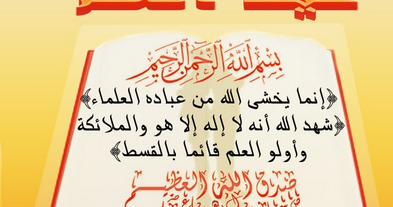 بسم الله الرحمن الرحيم
﴿إنما يخشى الله من عباده العلماء﴾
﴿شهد الله أنه لا إله إلا هو والملائكة
وأولو العلم قائما بالقسط﴾
صدق الله العظيم